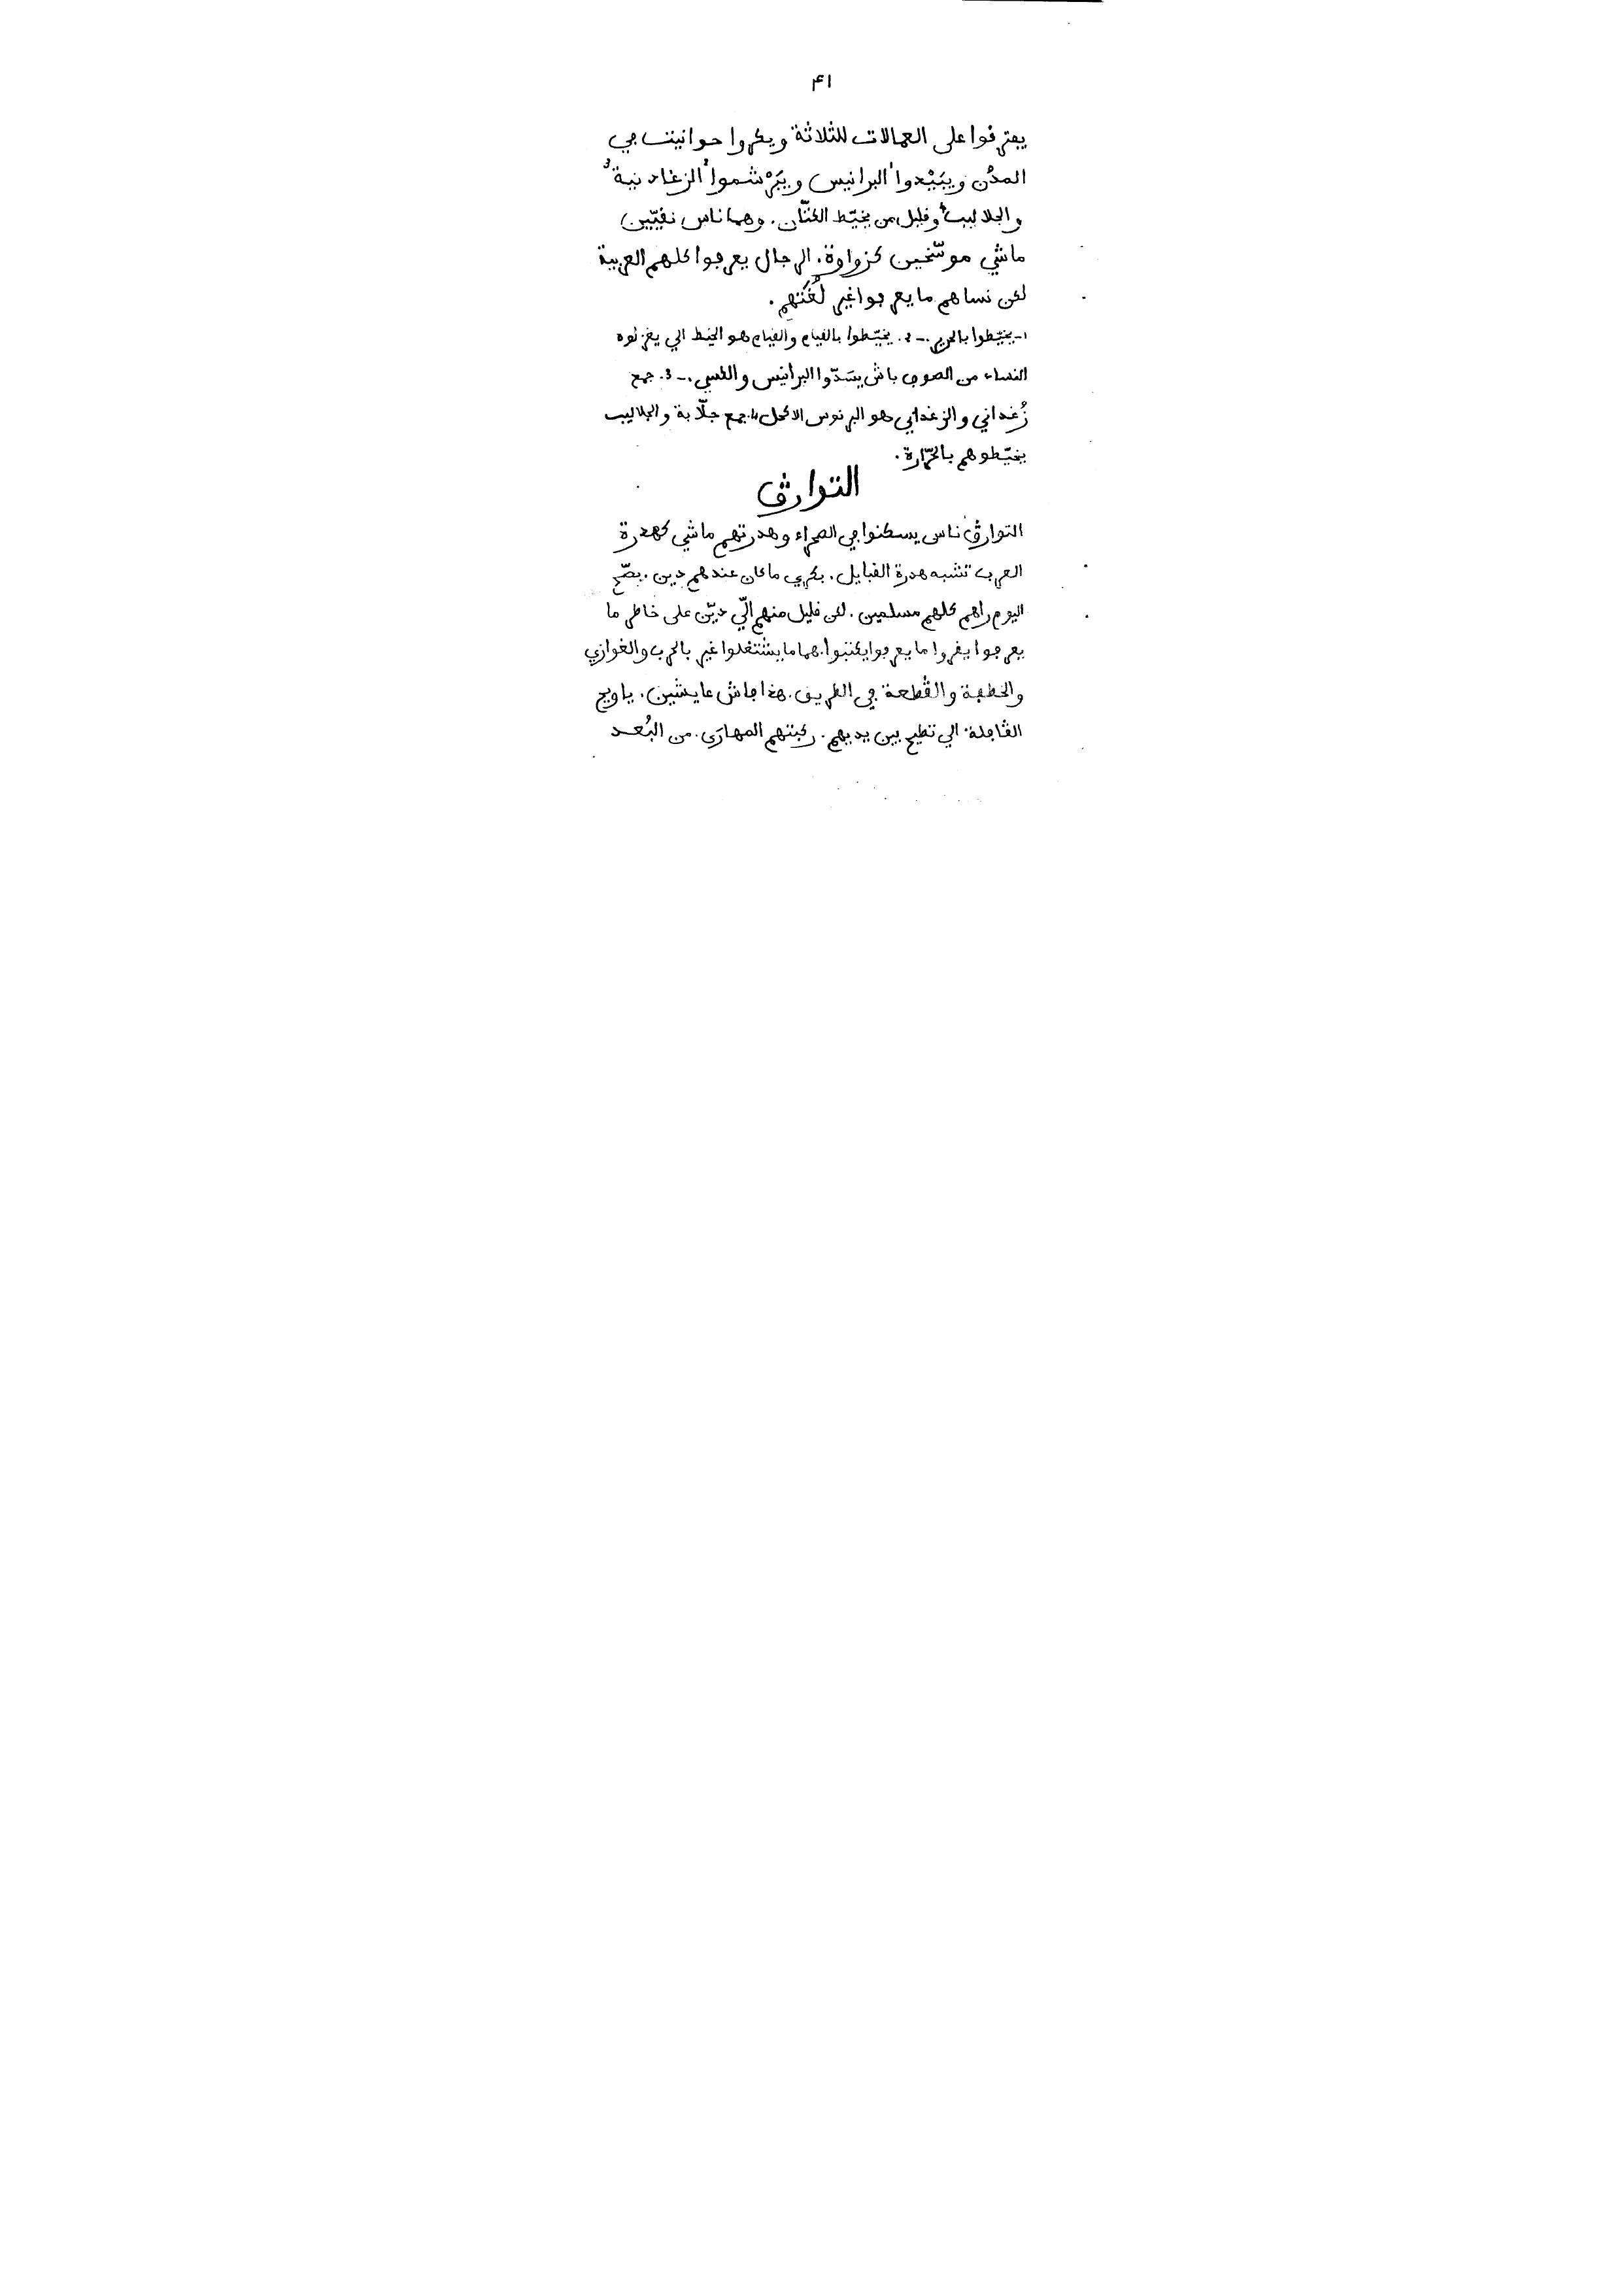 ٤١
يفترقوا على العمالات للثلاثة ويكروا حوانيت في
المدُن ويبَيْدوا¹ البرانيس ويبَرْشموا² الزغادنية³
والجلاليب⁴ وقليل من يخيّط الكتّان. وهما ناس نقيّين
ماشي موسّخين كزواوة. الرجال يعرفوا كلهم العربية
لكن نساهم ما يعرفوا غير لُغَتهم.
1- يخيّطوا بالحرير. - 2. يخيّطوا بالقيام والقيام هو الخيط الي يغزلوه
النساء من الصوف باش يسَدّوا البرانيس والكسي. - 3. جمع
زُغداني والزغداني هو البرنوس الاكحل 4. جمع جلّابة والجلاليب
يخيّطوهم بالخرّارة.
التوارڨ
التوارڨ ناس يسكنوا في الصحراء وهدرتهم ماشي كهدرة
العرب تشبه هدرة القبايل. بكري ما كان عندهم دين. بصّح
اليوم راهم كلهم مسلمين. لكن قليل منهم الّي ديّن على خاطر ما
يعرفوا يقروا ما يعرفوا يكتبوا. هما ما يشتغلوا غير بالحرب والغوازي
والخطفة والڨطعة في الطريق. هذا فاش عايشين. يا ويح
الڨافلة الي تطيح بين يديهم. ركبتهم المهارَى. من البُعد